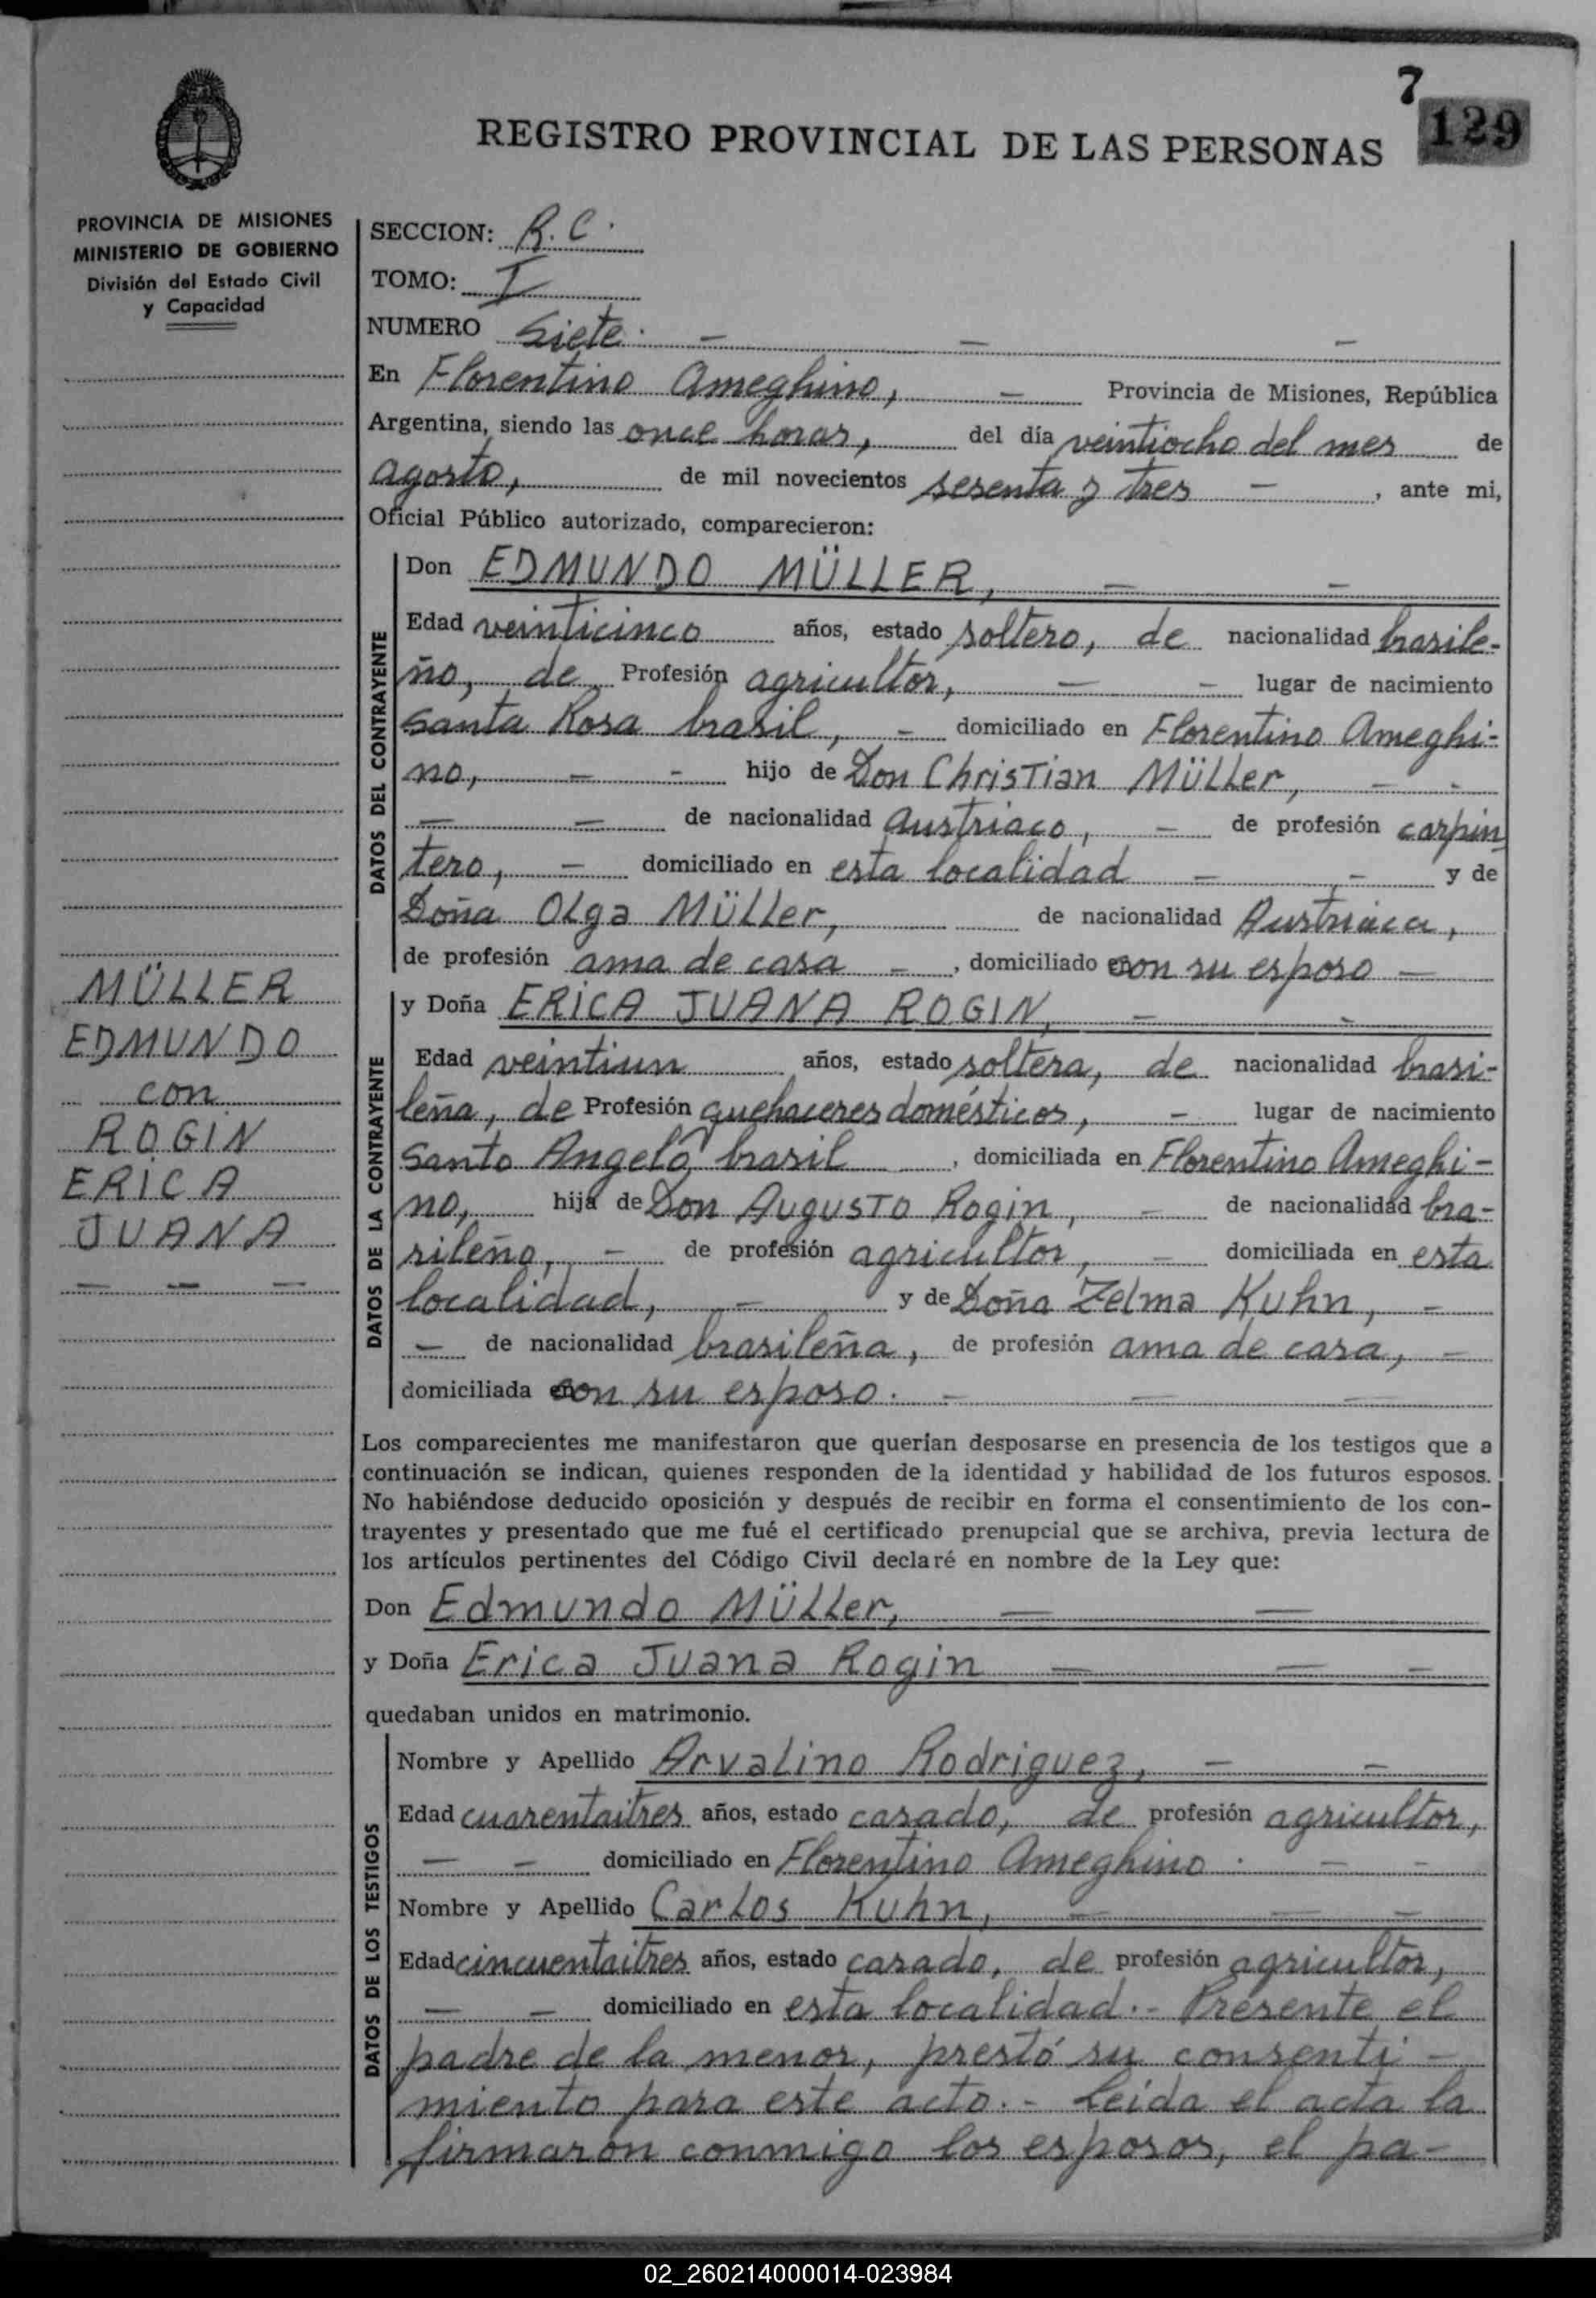 7
129
REGISTRO PROVINCIAL DE LAS PERSONAS
PROVINCIA DE MISIONES
MINISTERIO DE GOBIERNO
División del Estado Civil
y Capacidad
SECCION: R.C.
TOMO: I
NUMERO Siete. - - -
En Florentino Ameghino, - Provincia de Misiones, República
Argentina, siendo las once horas, del día veintiocho del mes de
agosto, de mil novecientos sesenta y tres - , ante mi,
Oficial Público autorizado, comparecieron:
DATOS DEL CONTRAYENTE
Don EDMUNDO MÜLLER, - -
Edad veinticinco años, estado soltero, de nacionalidad brasile-
ño, de Profesión agricultor, - - lugar de nacimiento
Santa Rosa brasil, - domiciliado en Florentino Ameghi-
no, - - hijo de Don Christian Müller, - -
- - de nacionalidad Austriaco, - de profesión carpin
tero, - domiciliado en esta localidad - , - y de
Doña Olga Müller, de nacionalidad Austriaca,
de profesión ama de casa - , domiciliado con su esposo -
MÜLLER
EDMUNDO
con
ROGIN
ERICA
JUANA
- - -
DATOS DE LA CONTRAYENTE
y Doña ERICA JUANA ROGIN, - -
Edad veintiun años, estado soltera, de nacionalidad brasi-
leña, de Profesión quehaceres domésticos, - lugar de nacimiento
Santo Angelo, brasil , domiciliada en Florentino Ameghi-
no, hija de Don Augusto Rogin, - de nacionalidad bra-
sileño, - de profesión agricultor, - domiciliada en esta
localidad, - y de Doña Zelma Kuhn, -
- de nacionalidad brasileña, de profesión ama de casa, -
domiciliada con su esposo. - - -
Los comparecientes me manifestaron que querían desposarse en presencia de los testigos que a
continuación se indican, quienes responden de la identidad y habilidad de los futuros esposos.
No habiéndose deducido oposición y después de recibir en forma el consentimiento de los con-
trayentes y presentado que me fué el certificado prenupcial que se archiva, previa lectura de
los artículos pertinentes del Código Civil declaré en nombre de la Ley que:
Don Edmundo Müller, - -
y Doña Erica Juana Rogin - - -
quedaban unidos en matrimonio.
DATOS DE LOS TESTIGOS
Nombre y Apellido Arvalino Rodriguez, - -
Edad cuarentaitres años, estado casado, de profesión agricultor,
- - domiciliado en Florentino Ameghino. - -
Nombre y Apellido Carlos Kuhn, - - -
Edad cincuentaitres años, estado casado, de profesión agricultor,
- - domiciliado en esta localidad.- Presente el
padre de la menor, prestó su consenti-
miento para este acto.- Leida el acta la
firmaron conmigo los esposos, el pa-
02_260214000014-023984